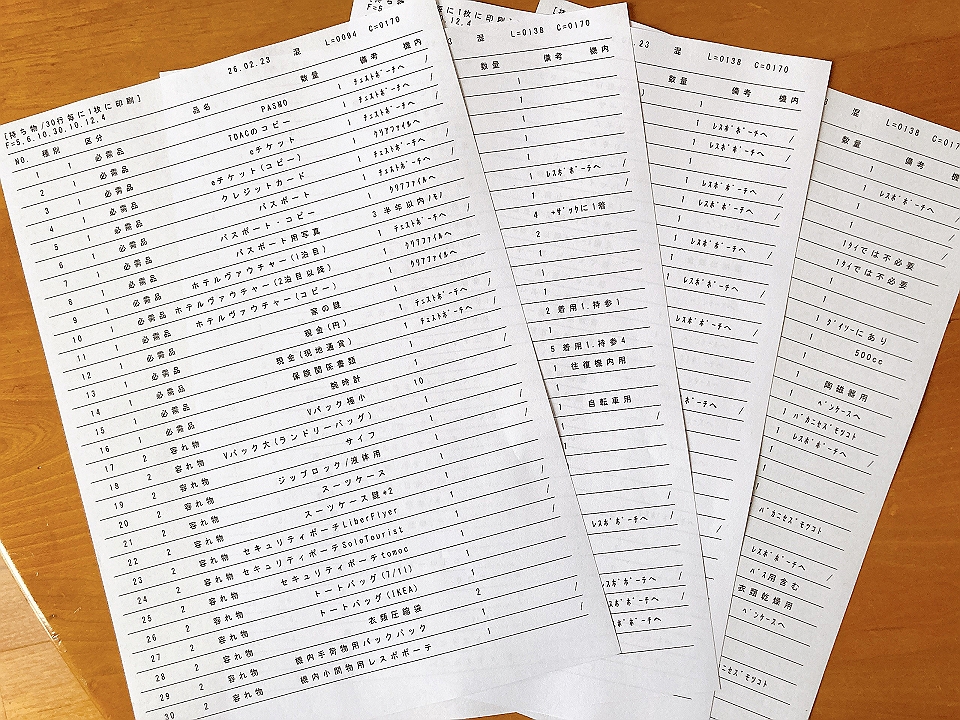 [持ち物/30行毎に1枚に印刷] 26.02.23 混 L=0094 C=0170
F=5.6.10.30.10.12.4
NO. 種別 区分 品名 数量 備考 機内
1 1 必需品 PASMO 1 ﾁｪｽﾄﾎﾟｰﾁへ /
2 1 必需品 TDACのコピー 1 ﾁｪｽﾄﾎﾟｰﾁへ /
3 1 必需品 eチケット 1 ﾁｪｽﾄﾎﾟｰﾁへ /
4 1 必需品 eチケット(コピー) 1 ｸﾘｱﾌｧｲﾙへ /
5 1 必需品 クレジットカード 1 ﾁｪｽﾄﾎﾟｰﾁへ /
6 1 必需品 パスポート 1 ﾁｪｽﾄﾎﾟｰﾁへ /
7 1 必需品 パスポート・コピー 1 ｸﾘｱﾌｧｲﾙへ /
8 1 必需品 パスポート用写真 3 半年以内/ﾓﾉ /
9 1 必需品 ホテルヴァウチャー(1泊目) 1 ﾁｪｽﾄﾎﾟｰﾁへ /
10 1 必需品 ホテルヴァウチャー(2泊目以降) 1 ｸﾘｱﾌｧｲﾙへ /
11 1 必需品 ホテルヴァウチャー(コピー) 1 ｸﾘｱﾌｧｲﾙへ /
12 1 必需品 家の鍵 1
13 1 必需品 現金(円) 1 ﾁｪｽﾄﾎﾟｰﾁへ /
14 1 必需品 現金(現地通貨) 1 ﾁｪｽﾄﾎﾟｰﾁへ /
15 1 必需品 保険関係書類 1
16 1 必需品 腕時計 1 /
17 2 容れ物 Vパック極小 10
18 2 容れ物 Vパック大(ランドリーバッグ) 1
19 2 容れ物 サイフ 1
20 2 容れ物 ジップロック/液体用 1 /
21 2 容れ物 スーツケース 1
22 2 容れ物 スーツケース鍵*2 1
23 2 容れ物 セキュリティポーチLiberFlyer 1 /
24 2 容れ物 セキュリティポーチSoloTourist 1
25 2 容れ物 セキュリティポーチtomoc 1
26 2 容れ物 トートバッグ(7/11) 1
27 2 容れ物 トートバッグ(IKEA) 1 /
28 2 容れ物 衣類圧縮袋 2
29 2 容れ物 機内手荷物用バックパック 1 /
30 2 容れ物 機内小間物用レスポポーチ 1 /
毎に1枚に印刷] 混 L=0138 C=0170
.12.4
数量 備考 機内
1
1
1
1
1 /
1 ﾚｽﾎﾟﾎﾟｰﾁへ
1 /
4 +ｻﾞｯｸに1着
2
1
1
1
2 着用1.持参1
1
5 着用1.持参4
1 往復機内用
1
1 自転車用
1
1
ﾚｽﾎﾟﾎﾟｰﾁへ /
ﾚｽﾎﾟﾎﾟｰﾁへ
ﾚｽﾎﾟﾎﾟｰﾁへ
23 混 L=0138 C=0170
数量 備考 機内
1
1 ﾚｽﾎﾟﾎﾟｰﾁへ /
1 ﾚｽﾎﾟﾎﾟｰﾁへ /
1
1 ﾚｽﾎﾟﾎﾟｰﾁへ /
1 ﾚｽﾎﾟﾎﾟｰﾁへ /
1
1 ﾚｽﾎﾟﾎﾟｰﾁへ /
1
1 ﾚｽﾎﾟﾎﾟｰﾁへ /
1
ﾚｽﾎﾟﾎﾟｰﾁへ /
/
L=0138 C=017
数量 備考 機
1
1 ﾚｽﾎﾟﾎﾟｰﾁへ /
1
1 1ﾀｲでは不必要
1 1ﾀｲでは不必要
1
1
1 ﾀﾞｲｿｰにあり
1 500cc
1
1 陶磁器用
1 ﾍﾟﾝｹｰｽへ
1 ﾊﾞｶﾆｾｽﾞﾓｿｺﾄ
1 ﾚｽﾎﾟﾎﾟｰﾁへ /
1
ﾊﾞｶﾆｾｽﾞﾓｿｺﾄ
ﾚｽﾎﾟﾎﾟｰﾁへ /
ﾊﾞｽ用含む
衣類乾燥用
ﾍﾟﾝｹｰｽへ
ﾆｾｽﾞﾓｿｺﾄ